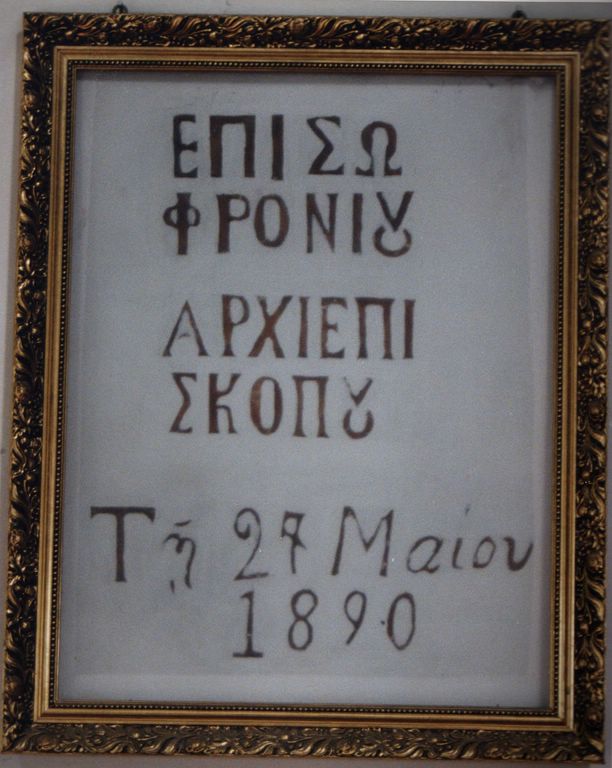 ΕΠΙ ΣΩ
ΦΡΟΝΙȢ
ΑΡΧΙΕΠΙ
ΣΚΟΠȢ
Τῇ 27 Μαίου
1890